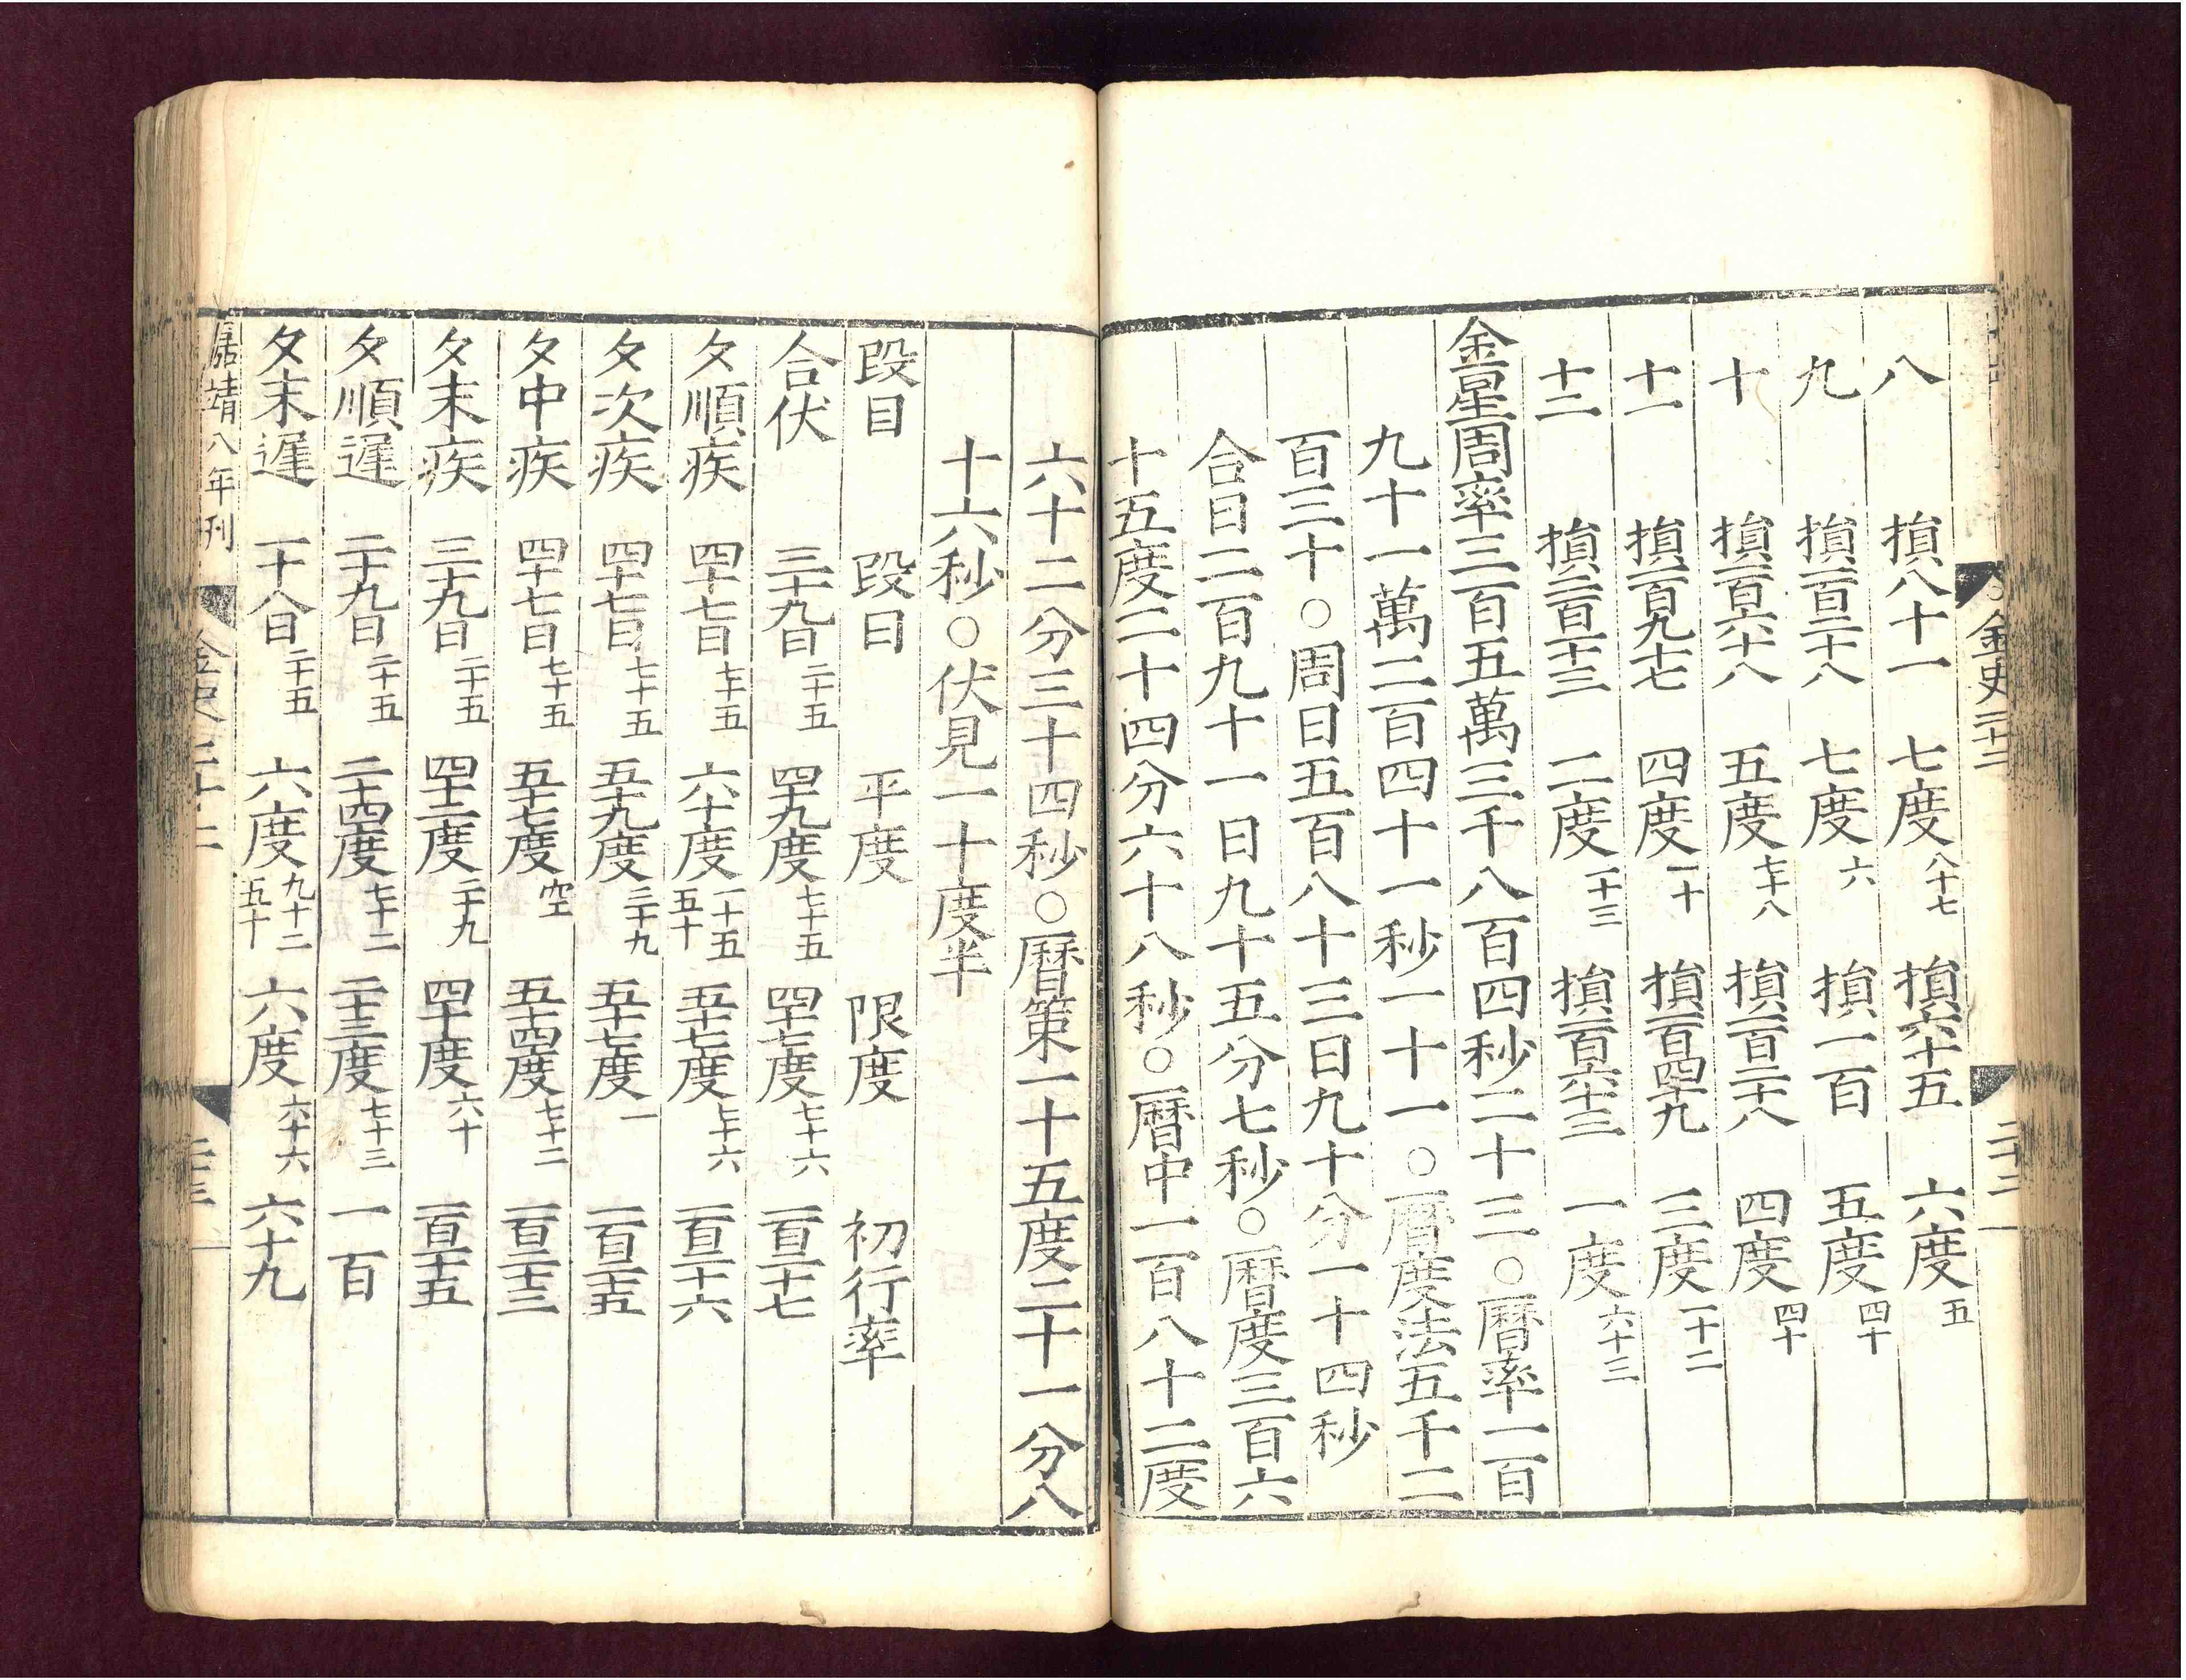 金史二十二 二十二
八 損八十一 七度八十七 損六十五 六度五
九 損一百二十八 七度六 損一百 五度四十
十 損一百六十八 五度七十八 損一百二十八 四度四十
十一 損一百九十七 四度一十 損一百四十九 三度一十二
十二 損二百一十三 二度一十三 損一百六十三 一度六十三
金星周率三百五萬三千八百四秒二十三○曆率一百
九十一萬二百四十一秒一十一○曆度法五千二
百三十○周日五百八十三日九十分一十四秒
合日二百九十一日九十五分七秒○曆度三百六
十五度二十四分六十八秒○曆中一百八十二度
六十二分三十四秒○曆策一十五度二十一分八
十六秒○伏見一十度半
段目 段日 平度 限度 初行率
合伏 三十九日二十五 四十九度七十五 四十七度七十六 一百二十七
夕順疾 四十七日七十五 六十度一十五五十 五十七度七十六 一百二十六
夕次疾 四十七日七十五 五十九度三十九 五十七度一 一百二十五
夕中疾 四十七日七十五 五十七度空 五十四度七十二 一百二十三
夕末疾 三十九日二十五 四十二度二十九 四十度六十 一百一十五
夕順遲 二十九日二十五 二十四度七十二 二十三度七十三 一百
夕末遲 一十八日二十五 六度九十二五十 六度六十六 六十九
嘉靖八年刊 金史二十二 二十三